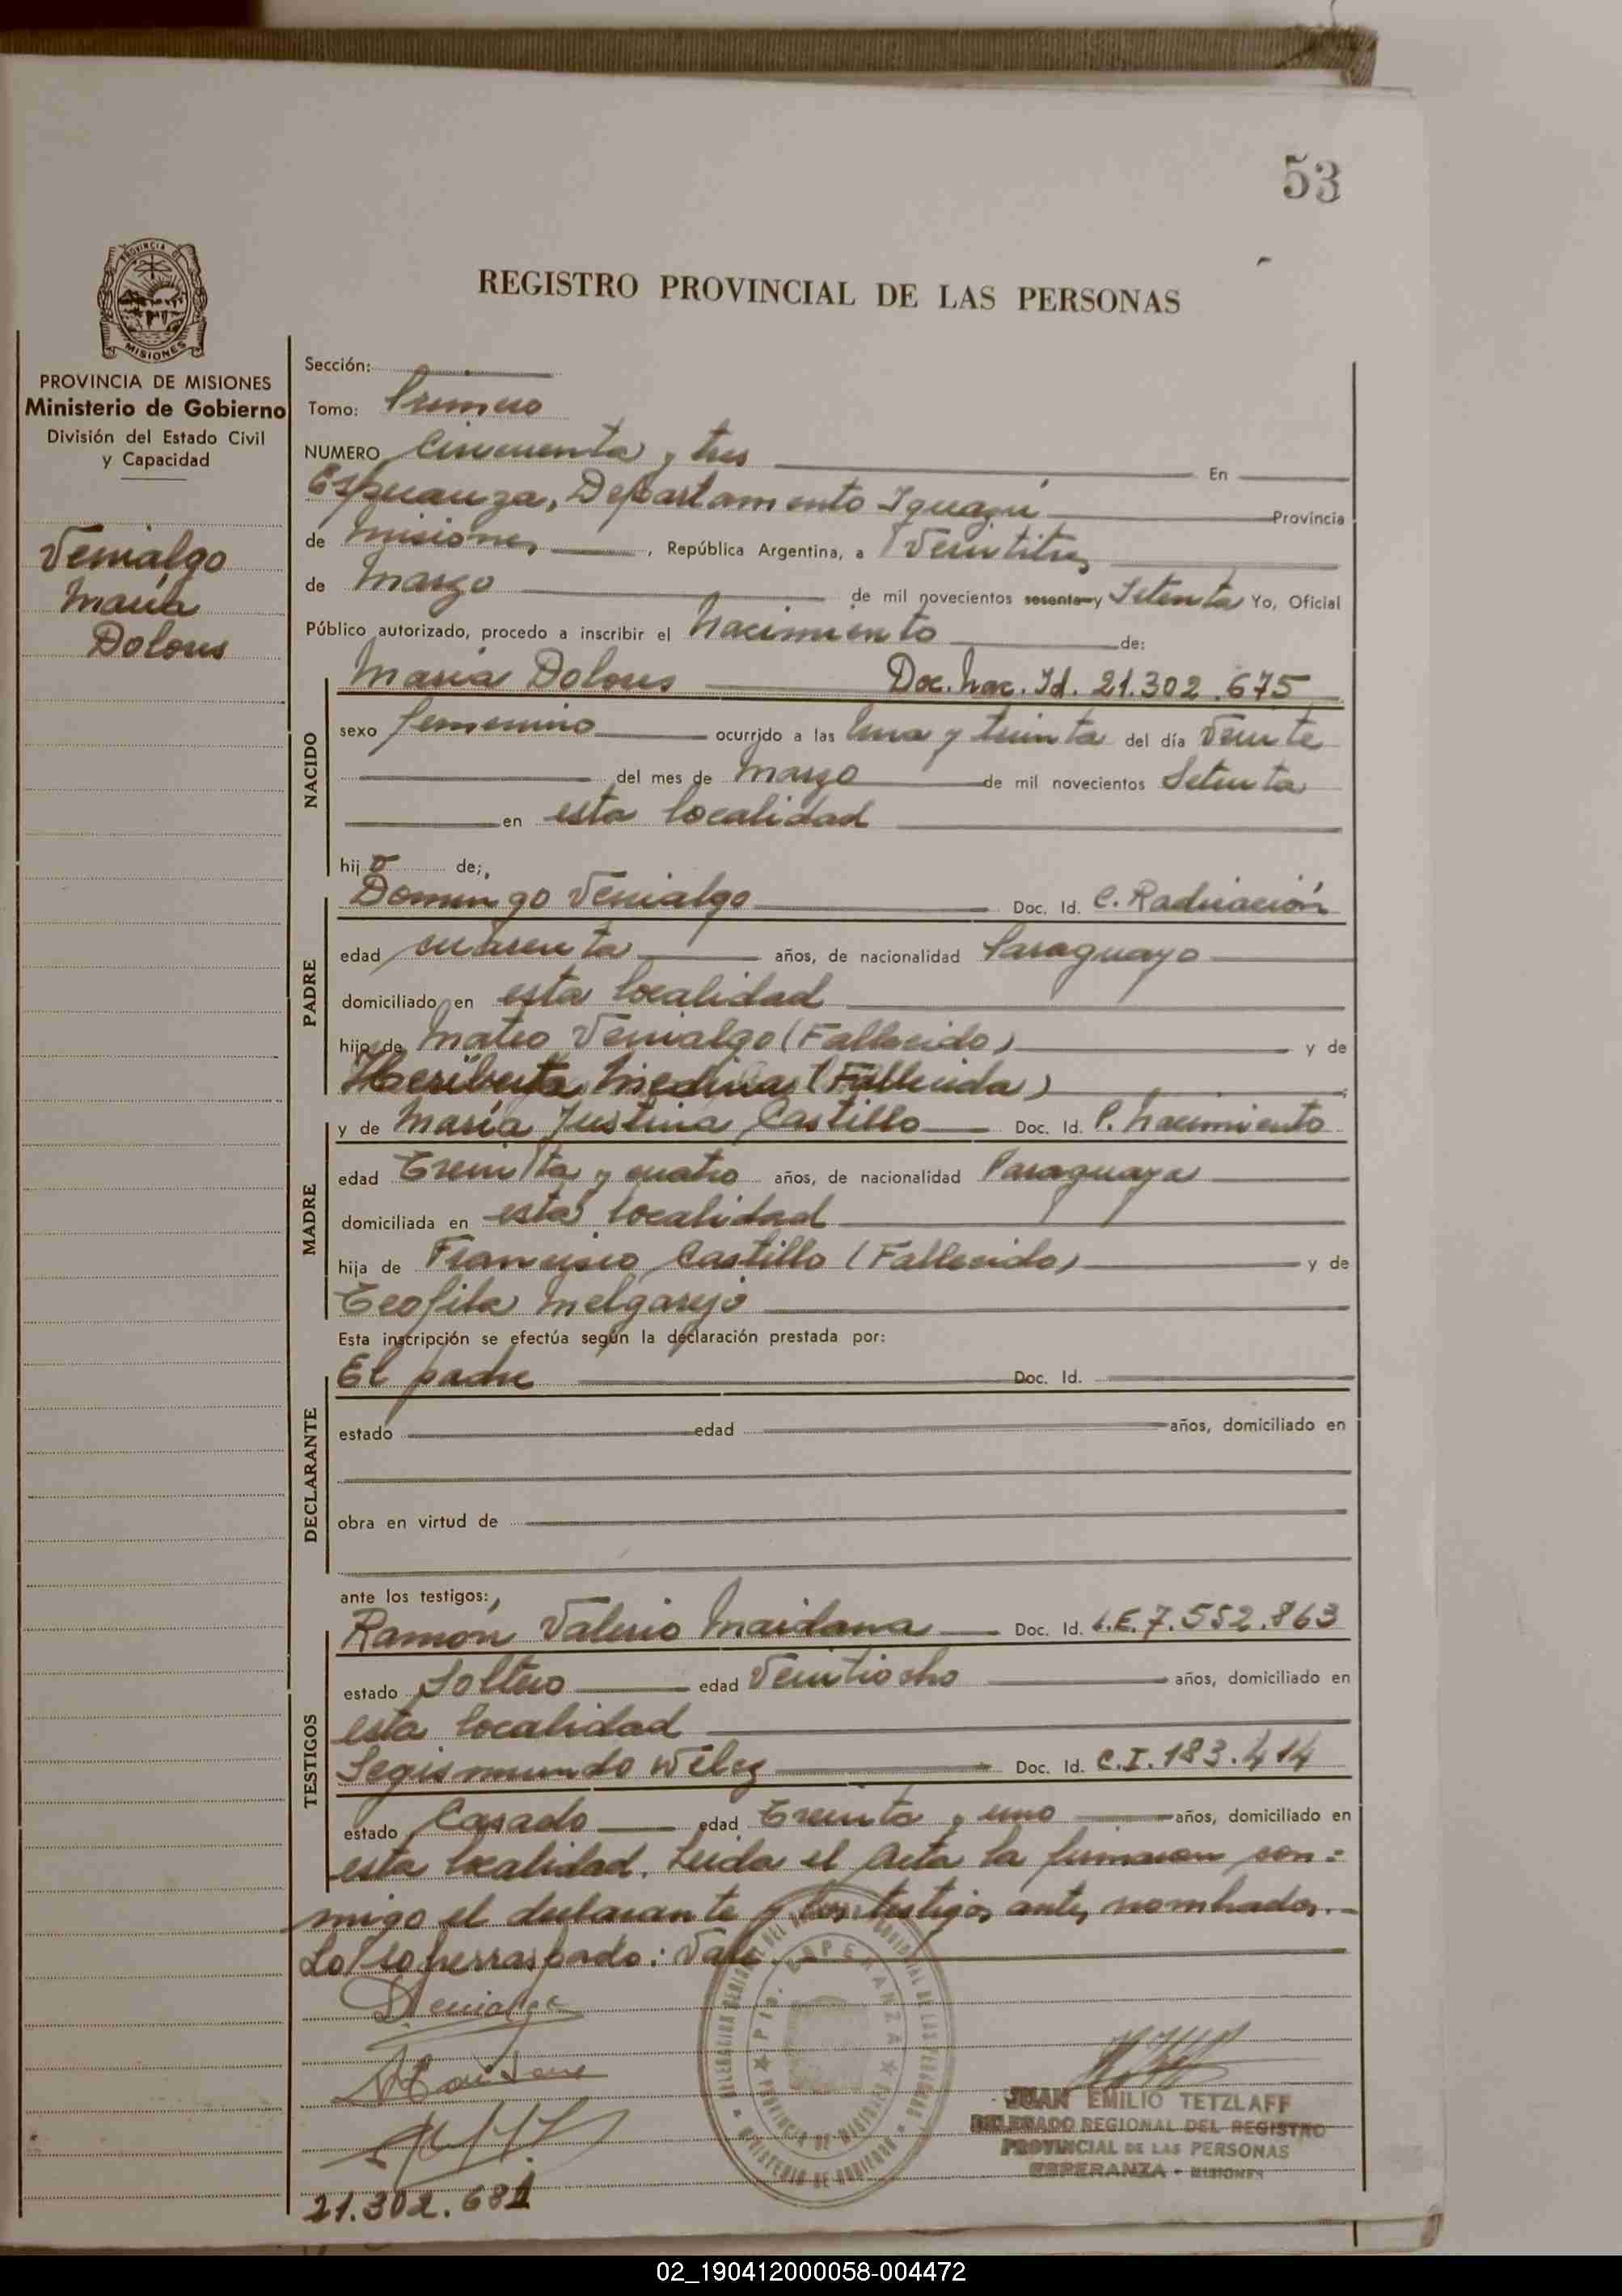 53
REGISTRO PROVINCIAL DE LAS PERSONAS
PROVINCIA DE MISIONES
Ministerio de Gobierno
División del Estado Civil
y Capacidad
Venialgo
María
Dolores
Sección:
Tomo: Primero
NUMERO Cincuenta y tres En
Esperanza, Departamento Iguazú Provincia
de Misiones, República Argentina, a Veintitres
de Marzo de mil novecientos sesenta y Setenta Yo, Oficial
Público autorizado, procedo a inscribir el Nacimiento de:
María Dolores Doc. Nac. Id. 21.302.675
NACIDO
sexo femenino ocurrido a las Una y treinta del día Veinte
del mes de Marzo de mil novecientos Setenta
en esta localidad
hij de:
PADRE
Domingo Venialgo Doc. Id. C. Radicación
edad cuarenta años, de nacionalidad Paraguayo
domiciliado en esta localidad
hijo de Mateo Venialgo (Fallecido) y de
Heriberta Medina (Fallecida)
MADRE
y de María Justina Castillo Doc. Id. P. Nacimiento
edad Treinta y cuatro años, de nacionalidad Paraguaya
domiciliada en esta localidad
hija de Francisco Castillo (Fallecido) y de
Teofila Melgarejo
Esta inscripción se efectúa según la declaración prestada por:
DECLARANTE
El padre Doc. Id.
estado edad años, domiciliado en
obra en virtud de
ante los testigos:
TESTIGOS
Ramón Valerio Maidana Doc. Id. L.E. 7.552.863
estado Soltero edad Veintiocho años, domiciliado en
esta localidad
Segismundo Doc. Id. C.I. 183.414
estado Casado edad Treinta y uno años, domiciliado en
esta localidad. Leida el Acta la firmaron con=
migo el declarante y los testigos antes nombrados.-
Lo sobrerraspado: Vale.
D Venialgo
JUAN EMILIO TETZLAFF
DELEGADO REGIONAL DEL REGISTRO
PROVINCIAL DE LAS PERSONAS
ESPERANZA - MISIONES
21.302.681
02_190412000058-004472